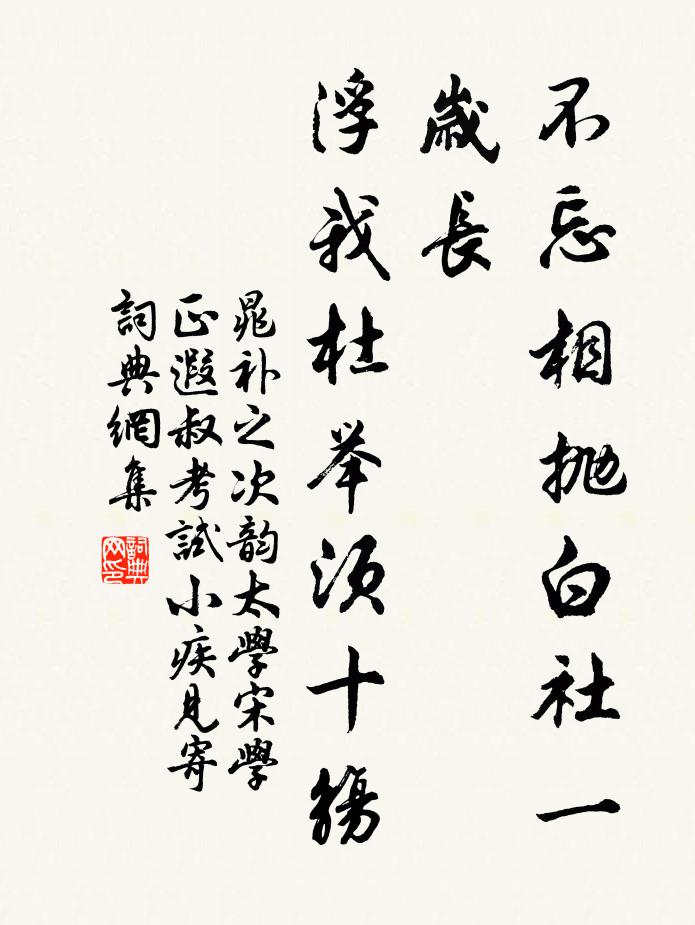 不忘相抛白社一
歲長
浮我杜举須十觴
晁补之次韵太學宋學
正遐叔考試小疾見寄
詞典網集
詞典网印